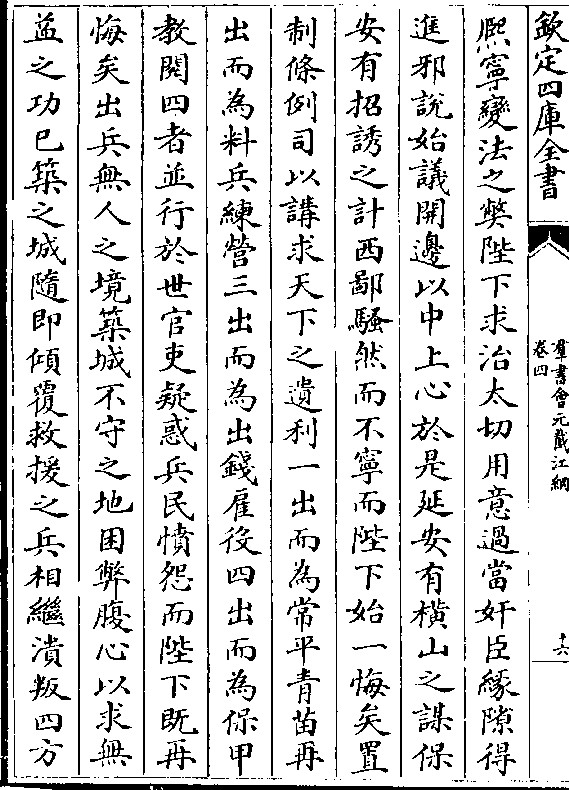 欽定四庫全書
羣書會元截江網
卷四
十六
熈寧變法之弊陛下求治太切用意過當奸臣縁隙得
進邪説始議開邊以中上心於是延安有横山之謀保
安有招誘之計西鄙騷然而不寧而陛下始一悔矣置
制條例司以講求天下之遺利一出而為常平青苗再
出而為料兵練營三出而為出錢雇役四出而為保甲
教閲四者並行於世官吏疑惑兵民憤怨而陛下既再
悔矣出兵無人之境築城不守之地困弊腹心以求無
益之功已築之城隨即傾覆救援之兵相繼潰叛四方